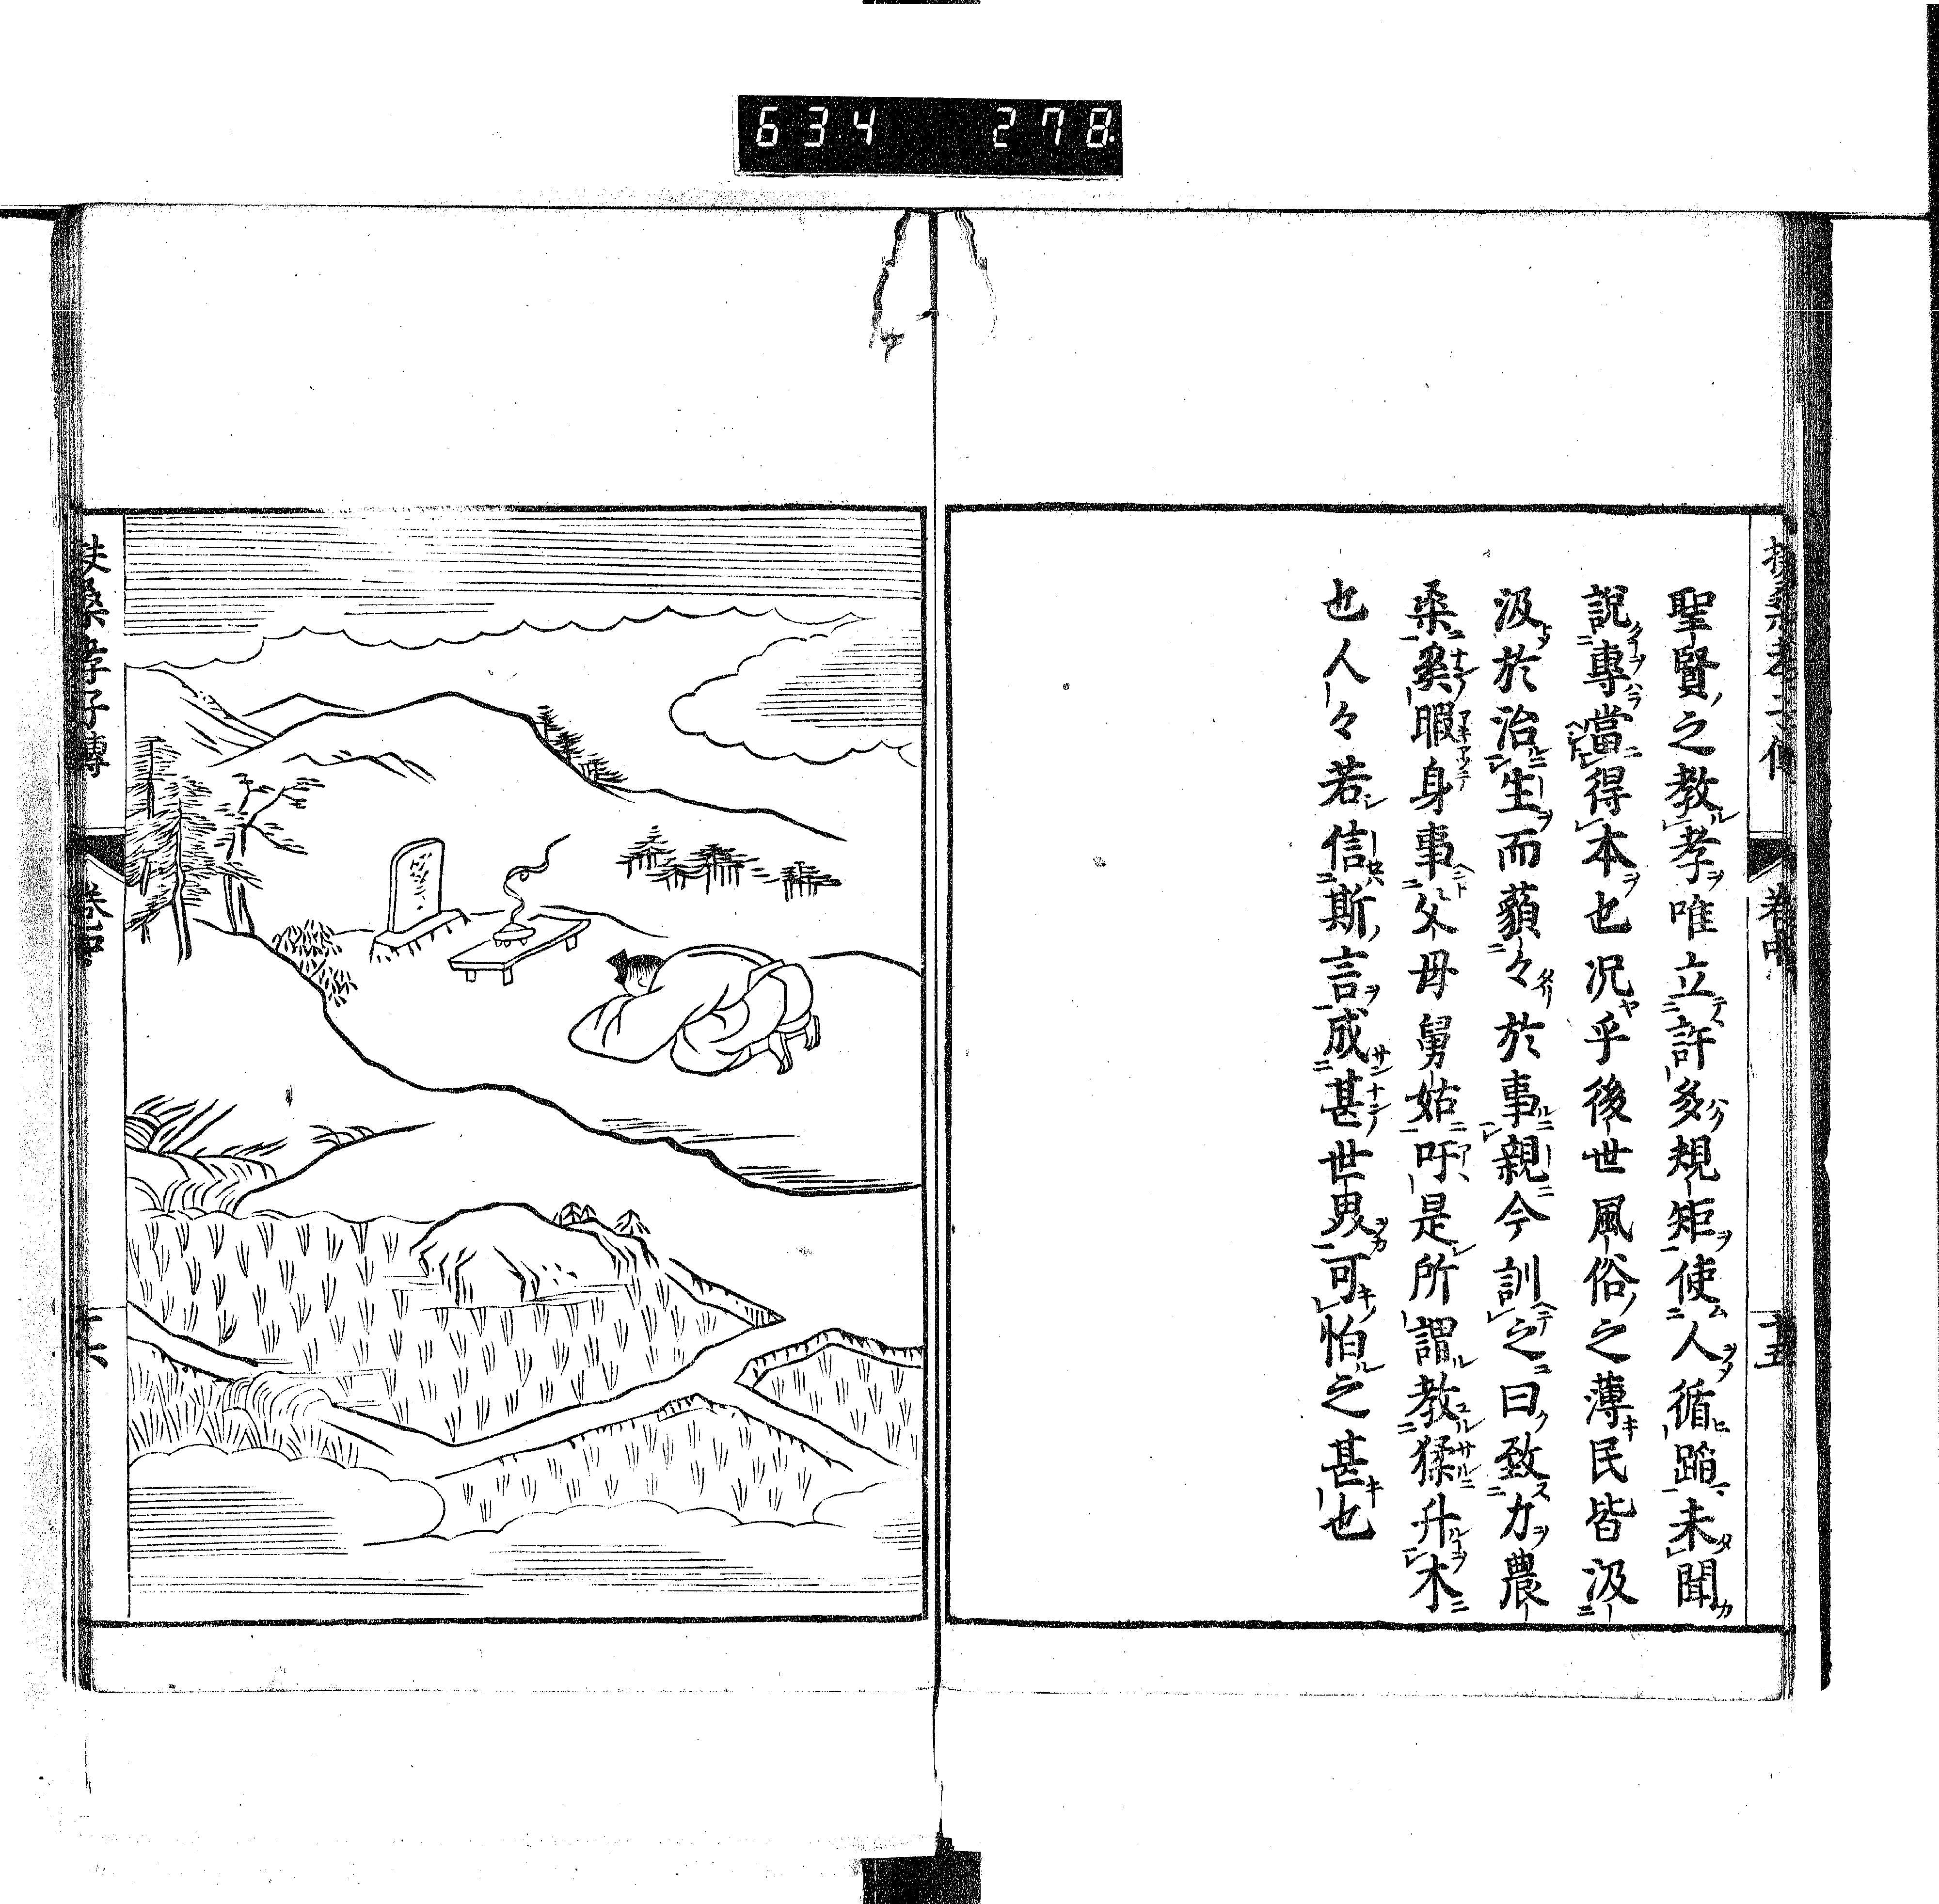 634 278
扶桑孝子傳 卷中 十五
聖賢之教孝唯立許多規矩使人循蹈未聞
說專當得本也况乎後世風俗之薄民皆汲
汲於治生而藐々於事親今訓之曰致力農
桒奚暇身事父母舅姑吁是所謂教猱升木
也人々若信斯言成甚世畀可怕之甚也
扶桑孝子傳 卷中 十六